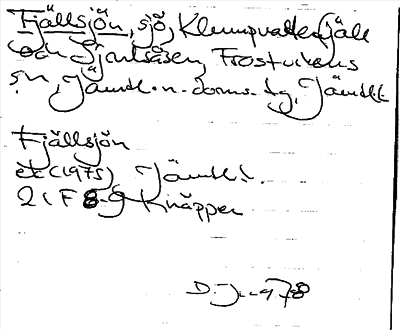 Fjällsjön, sjö, Klumpvattenfjäll
och Sjoutsåsen, Frostvikens
sn, Jämtl. n. doms. tg, Jämtl.l.
Fjällsjön
ek (1975) Jämtl. l.
21 F 8-9 Knäppen
D. J. 1978